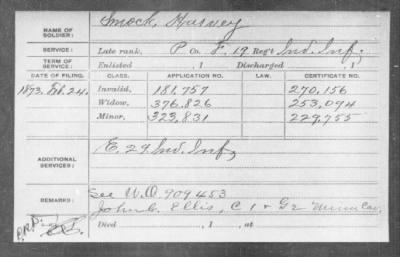 NAME OF SOLDIER: Smock, Harvey
SERVICE: Late rank, P Co. F, 19 Reg't Ind. Inf;
TERM OF SERVICE: Enlisted , 1 Discharged , 1
DATE OF FILING. CLASS. APPLICATION NO. LAW. CERTIFICATE NO.
1873, Feb. 24. Invalid, 181,757 270,156
Widow, 376,826 253,094
Minor, 323,831 229,755
ADDITIONAL SERVICES: E. 29 Ind. Inf;
REMARKS: See W.O. 909453
John C. Ellis, C 1 & G 2 Minn Cav.
Died , 1 , at